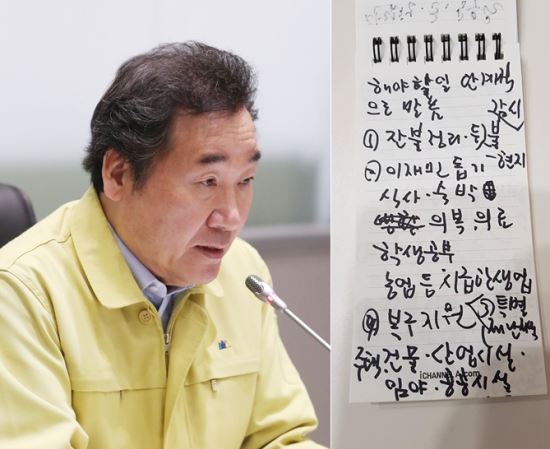 해야할일 단계적
으로 말씀
감시
① 잔불정리·뒷불
② 이재민 돕기-현지
식사·숙박
의복, 의료
학생공부
농업 등 시급한 생업
④ 복구지원
③ 특별
주택, 건물·산업시설·
iCHANNELA.com
임야·공공시설